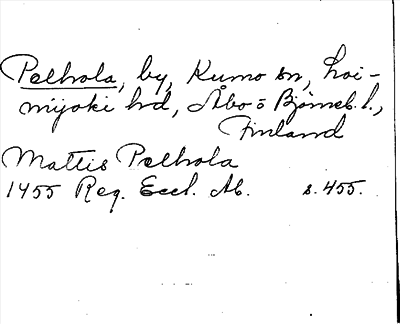 Pelhola, by, Kumo sn, Loi-
mijoki hd, Åbo o Björneb. l.,
Finland
Mattis Pelhola
1455 Reg. Eccl. Ab. s. 455.